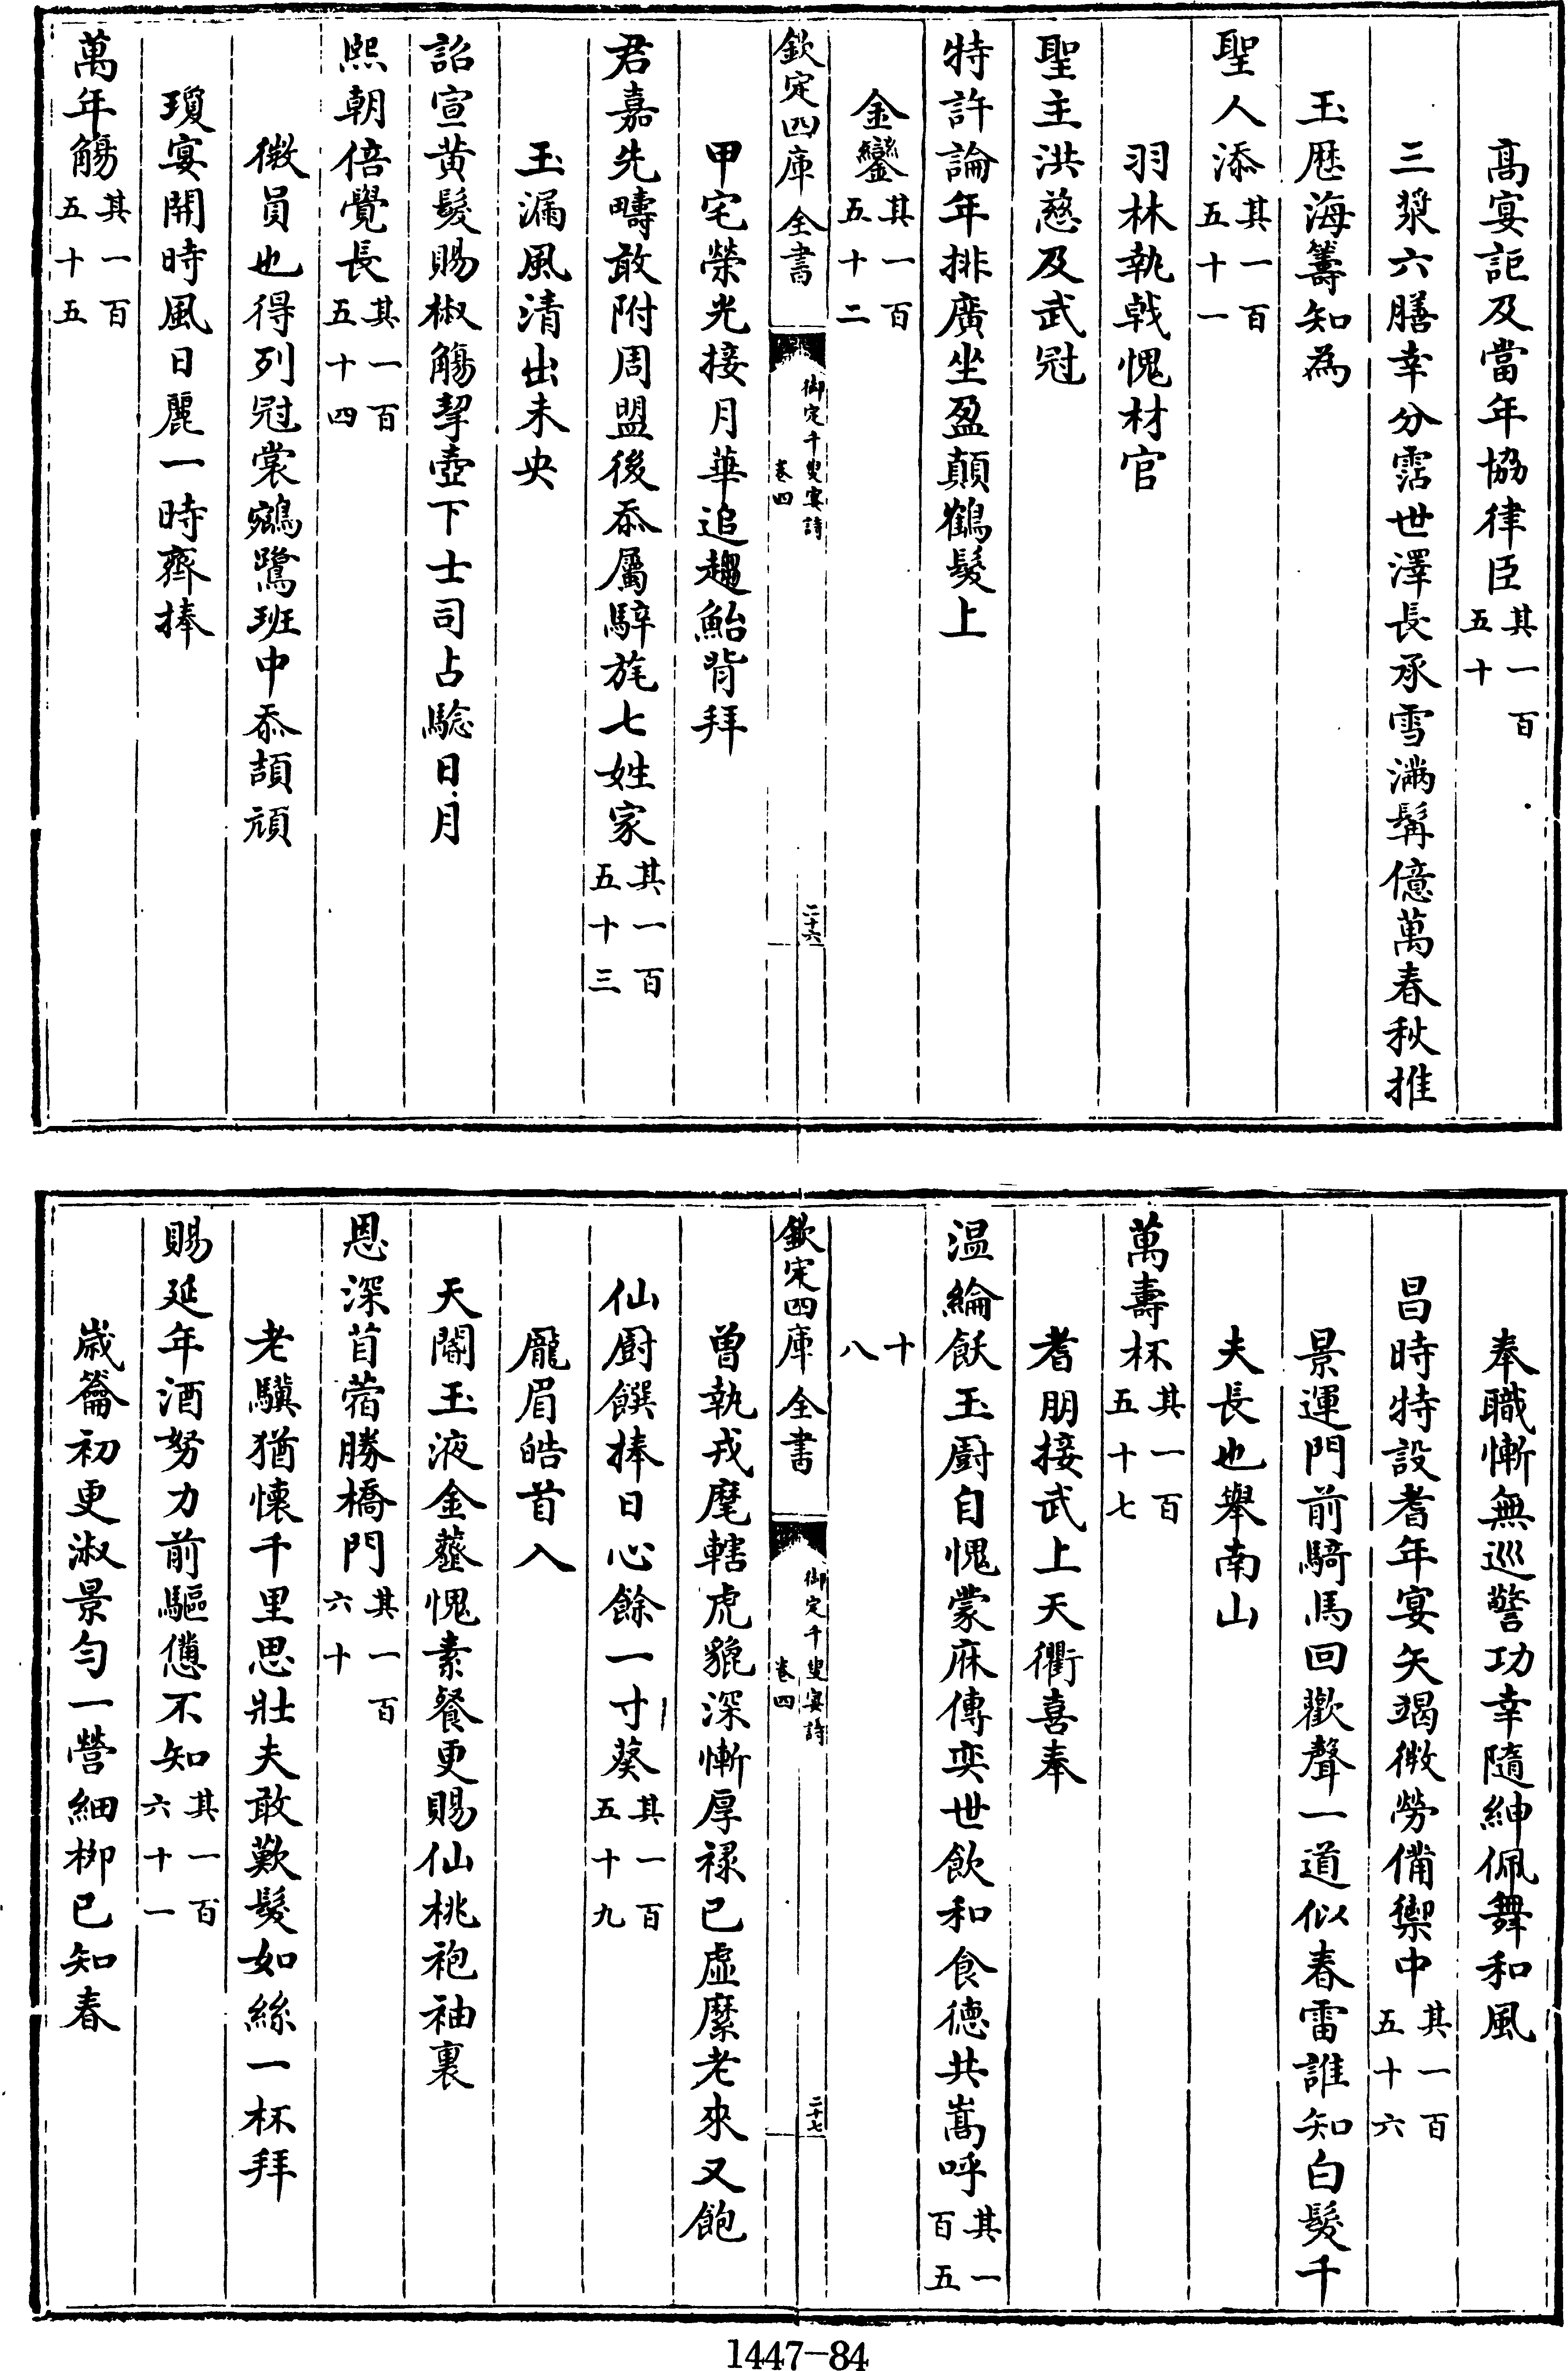 髙宴詎及當年協律臣其一百五十
三漿六膳幸分霑世澤長承雪滿髯億萬春秋推
玉厯海籌知為
聖人添其一百五十一
羽林執戟愧材官
聖主洪慈及武冠
特許論年排廣坐盈顛鶴髮上
金鑾其一百五十二
欽定四庫全書
御定千叟宴詩
卷四
二十六
甲宅榮光接月華追趨鮐背拜
君嘉先疇敢附周盟後忝屬騂旄七姓家其一百五十三
玉漏風清出未央
詔宣黄髮賜椒觴挈壺下士司占驗日月
熙朝倍覺長其一百五十四
微員也得列冠裳鵷鷺班中忝頡頏
瓊宴開時風日麗一時齊捧
萬年觴其一百五十五
奉職慚無巡警功幸隨紳佩舞和風
昌時特設耆年宴矢竭微勞備禦中其一百五十六
景運門前騎馬回歡聲一道似春雷誰知白髮千
夫長也舉南山
萬壽杯其一百五十七
耆朋接武上天衢喜奉
温綸飫玉厨自愧蒙庥傳奕世飲和食德共嵩呼其一百五
十八
欽定四庫全書
御定千叟宴詩
卷四
二十七
曽執戎麾轄虎貔深慚厚禄已虛縻老來又飽
仙厨饌捧日心餘一寸葵其一百五十九
龎眉皓首入
天閽玉液金虀愧素餐更賜仙桃袍袖裏
恩深苜蓿勝橋門其一百六十
老驥猶懷千里思壯夫敢歎髮如絲一杯拜
賜延年酒努力前驅憊不知其一百六十一
歳籥初更淑景匀一營細栁已知春
1447-84